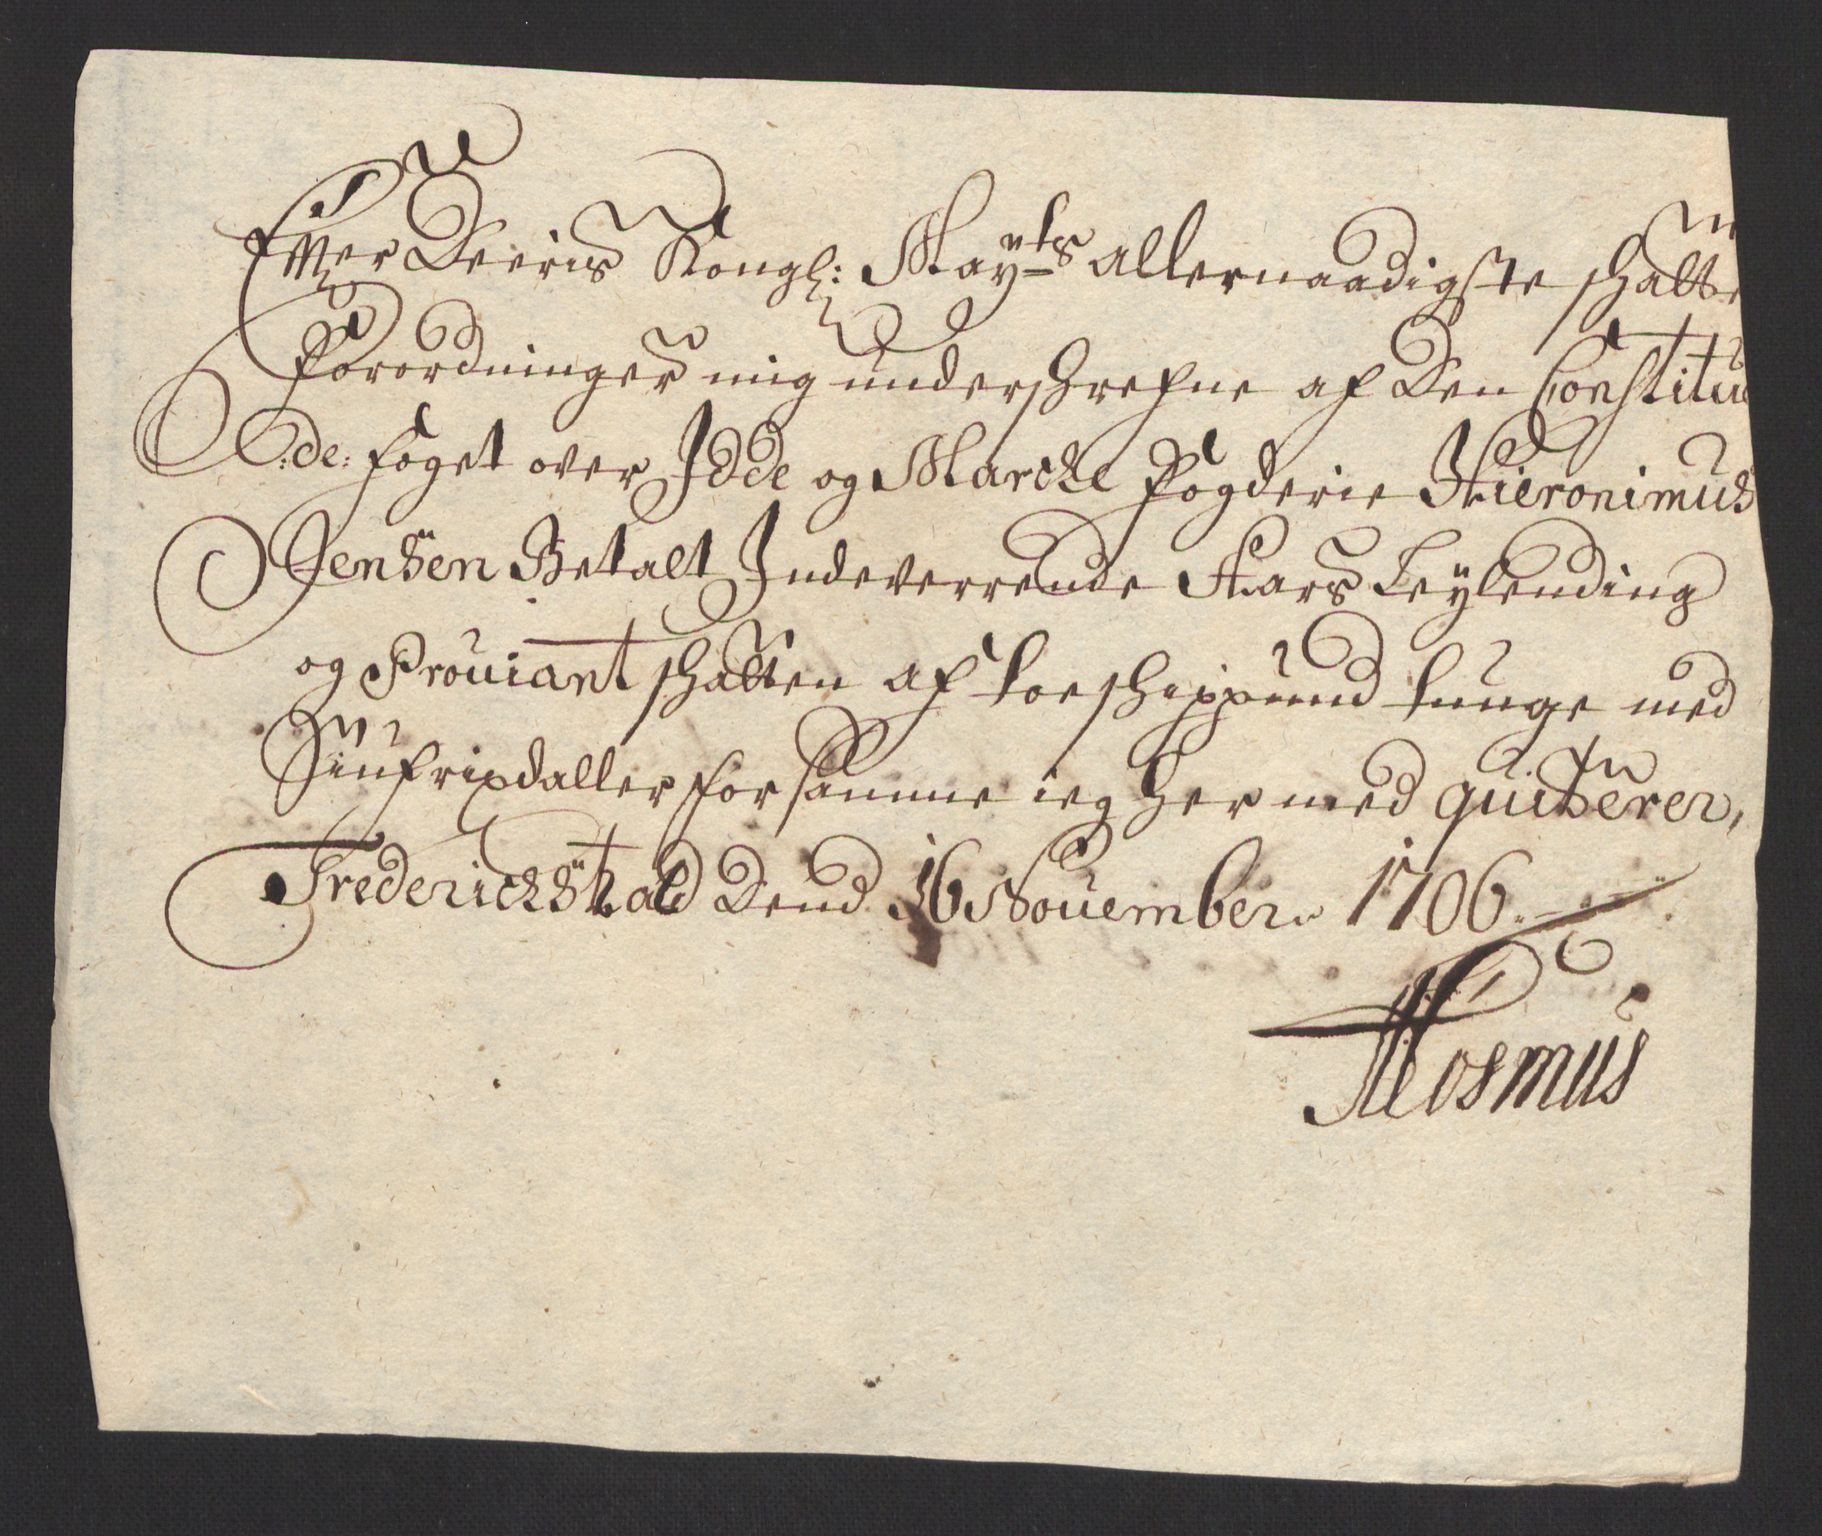 Effter Deeris Kongl: Mayts allernaadigste schatte
forordninger mig underschrefne af den Constitue
:de: foget over Idde og Marche fogderie Hieronimus
Jensen Betalt Indeverrende Aars Leylending
og Prouiant schatten af toe schippund tunge med
rixdaller for samme ieg her med quiterer,
Friderichshald Dend 16 Nouember 1706.